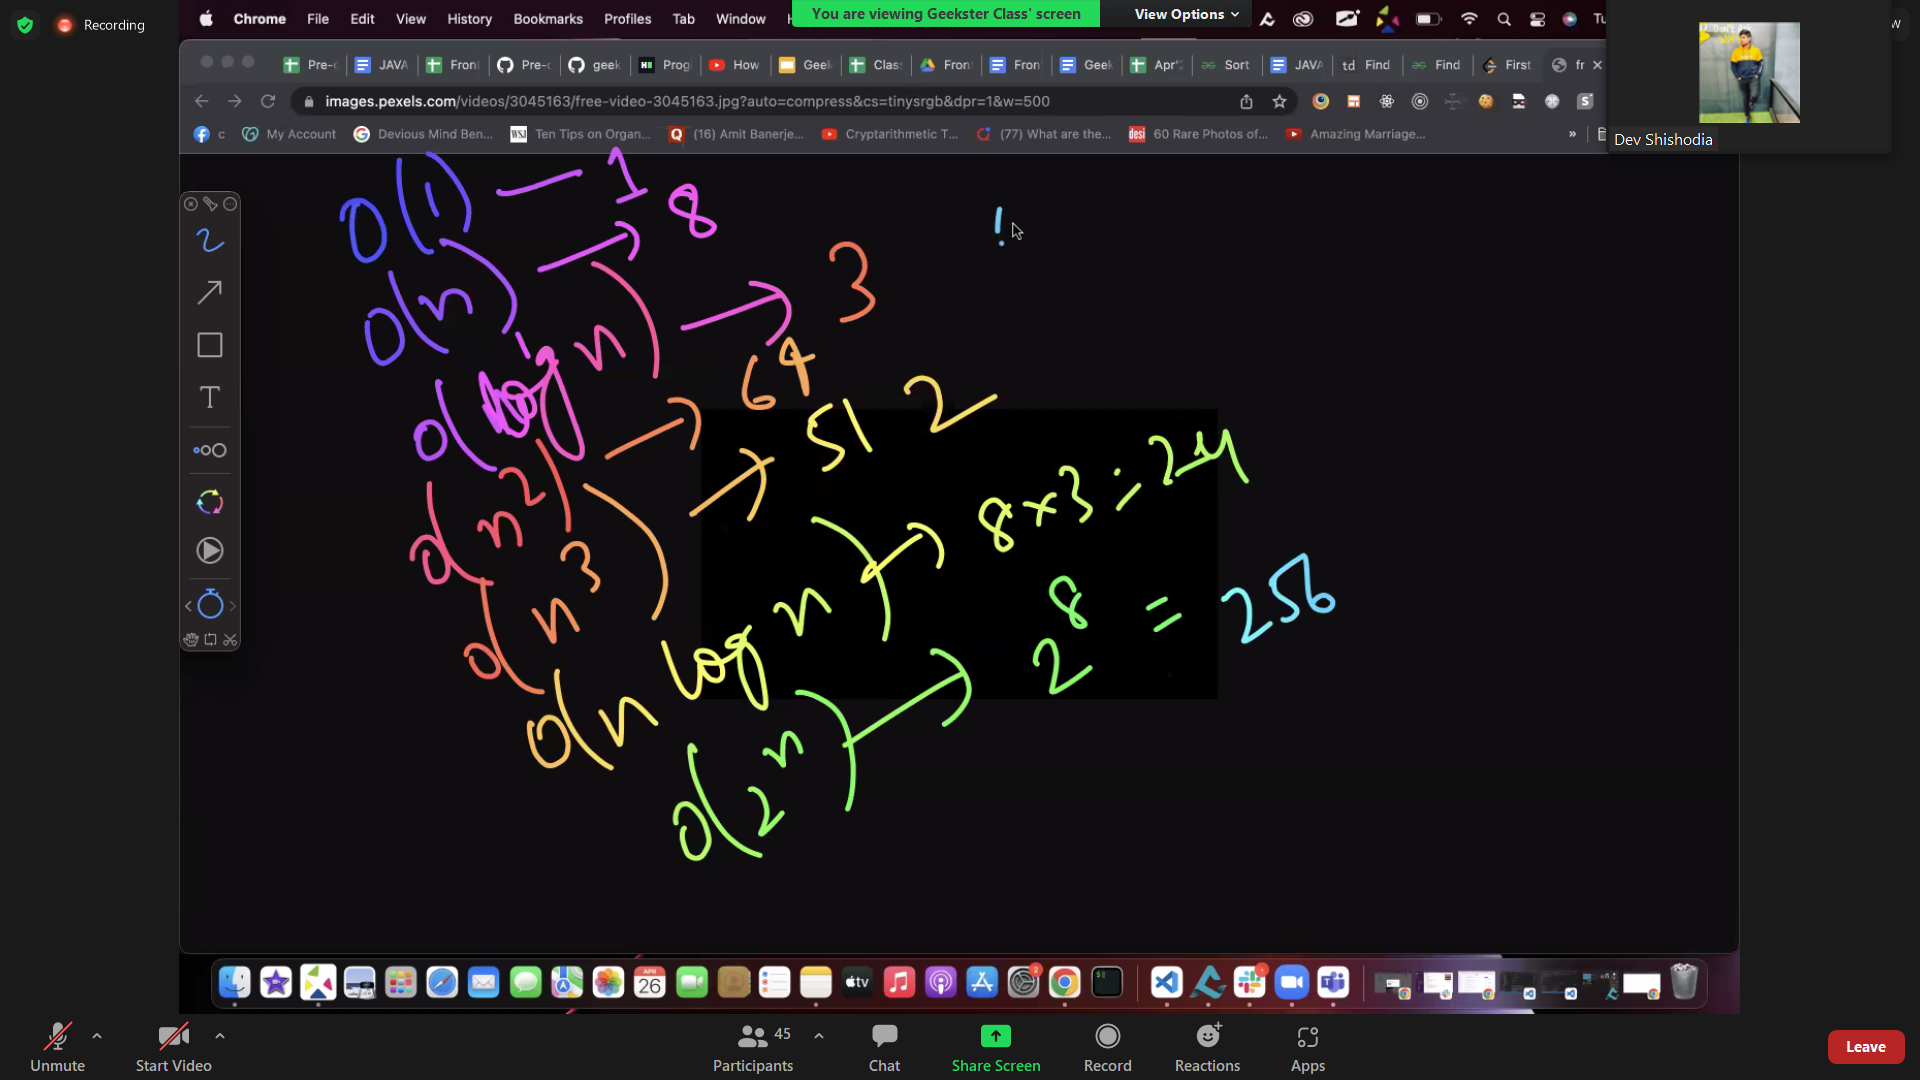 Recording
Chrome File Edit View History Bookmarks Profiles Tab Window
You are viewing Geekster Class' screen View Options
Pre- JAVA Fron Pre- geek Prog How Geek Clas Fron Fron Geek Apr' Sort JAVA td Find Find First fr
images.pexels.com/videos/3045163/free-video-3045163.jpg?auto=compress&cs=tinysrgb&dpr=1&w=500
c My Account Devious Mind Ben... WSJ Ten Tips on Organ... Q (16) Amit Banerje... Cryptarithmetic T... (77) What are the... desi 60 Rare Photos of... Amazing Marriage... »
Dev Shishodia
O(1) — 1
O(n) → 8
O(log n) → 3
O(n² ) → 64
O(n³) → 512
O(n log n) → 8 x 3 = 24
O(2ⁿ) → 2⁸ = 256
!
T
APR
26
tv
2
Unmute
Start Video
45
Participants
Chat
Share Screen
Record
Reactions
Apps
Leave